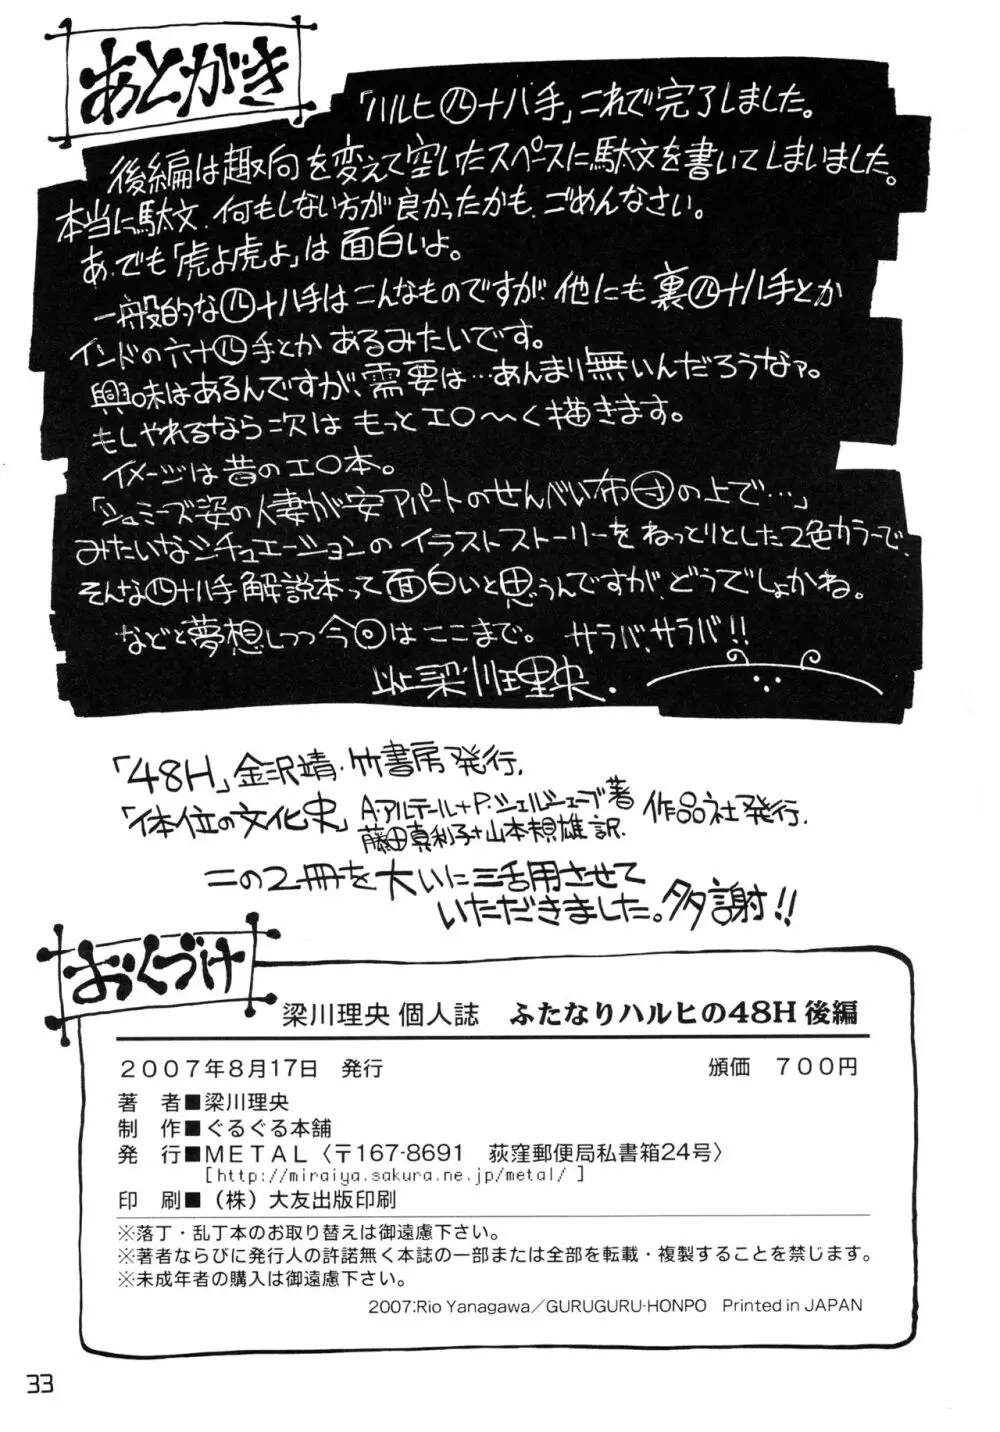 あとがき
「ハルヒ四十八手」これで完了しました。
後編は趣向を変えて空いたスペースに駄文を書いてしまいました。
本当に駄文、何もしない方が良かったかも、ごめんなさい。
あ、でも「虎よ虎よ」は面白いよ。
一般的な四十八手はこんなものですが、他にも裏四十八手とか
インドの六十四手とかあるみたいです。
興味はあるんですが、需要は…あんまり無いんだろうなァ。
もしやれるなら次はもっとエ〇〜く描きます。
イメージは昔のエ〇本。
「シュミーズ姿の人妻が安アパートのせんべい布団の上で…」
みたいなシチュエーションのイラストストーリーをねっとりとした2色カラーで、
そんな四十八手解説本って面白いと思うんですが、どうでしょかね。
などと夢想しつつ今回はここまで。 サラバ、サラバ!!
以上梁川理央.
「48H」金沢靖・竹書房発行.
「体位の文化史」A・アルテール+P・シェルシェーブ著
藤田真利子+山本規雄訳.
作品社発行.
この2冊を大いに活用させて
いただきました。多謝!!
おくづけ
梁川理央 個人誌 ふたなりハルヒの48H 後編
2007年8月17日 発行 頒価 700円
著 者■梁川理央
制 作■ぐるぐる本舗
発 行■METAL〈〒167-8691 荻窪郵便局私書箱24号〉
[http://miraiya.sakura.ne.jp/metal/ ]
印 刷■(株)大友出版印刷
※落丁・乱丁本のお取り替えは御遠慮下さい。
※著者ならびに発行人の許諾無く本誌の一部または全部を転載・複製することを禁じます。
※未成年者の購入は御遠慮下さい。
2007:Rio Yanagawa/GURUGURU-HONPO Printed in JAPAN
33